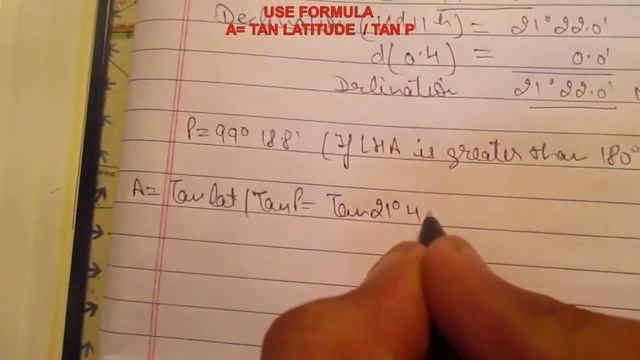 USE FORMULA
A= TAN LATITUDE / TAN P
Declination ( 11 h) = 21° 22.0'
d(0.4) = 0.0'
Declination 21° 22.0'
P = 99° 18.8' (If LHA is greater than 180°
A = Tan Lat / Tan P = Tan 21° 4